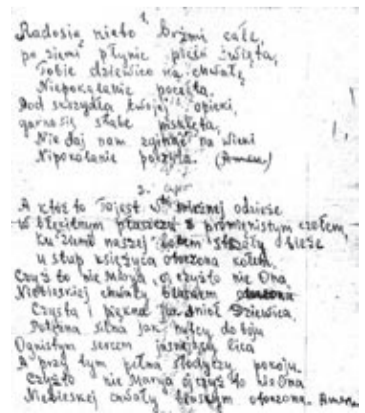 1.
Radosią niebo brzmi całe,
po ziemi płynie pieśń święta,
Tobie dziewico na chwałę
Niepokalanie poczęta.
Pod skrzydła twojej opieki,
garną się słabe pisklęta,
Nie daj nam zginąć na wieki
Nipokalanie poczęta. (Amen)
2.
A któż to To jest w śnieżnej odzieże
W błękitnym płaszczu z promienistym czołem,
ku ziemi naszej
u stóp księżyca otoczona kołem.
Czyż to nie Marya, o czyżto nie Ona
Niebieskiej chwały blaskiem otoczona
Czysta i piękna jak anioł Dziewica.
Potężna silna jak hufcy do boju
Ognistym sercem jaśniejąca lica
A przy tym pełna słodyczy pokoju.
Czyżto nie Marya o czyż to nie Ona
Niebieskiej chwały blaskiem otoczona. Amen